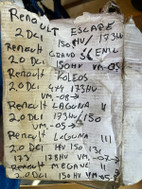 Renault ESCAPE
2.0 DCI 150HV/173HV
Renault GRAND SCENIC
2.0 DCI 150HV VM-05
Renault KOLEOS
2.0 DCI 4x4 173HV
VM-08→
Renault LAGUNA II
2.0 DCI 173HV/150
VM-05→
Renault LAGUNA III
2.0 DCI HV 150 131
173 178HV VM-07→
Renault MEGANE
2.0 DCI 150HV VM-05